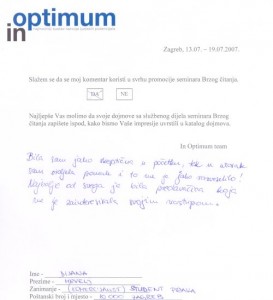 in optimum
Zagreb, 13.07. – 19.07.2007.
Slažem se da se moj komentar koristi u svrhu promocije seminara Brzog čitanja.
DA NE
Najljepše Vas molimo da svoje dojmove sa službenog dijela seminara Brzog
čitanja zapišete ispod, kako bismo Vaše impresije uvrstili u katalog dojmova.
In Optimum team
Bila sam jako skeptična u početku, ali u utorak
sam vidjela pomak i to me je jako razveselilo!
Najbolje od svega je bila predavačica koja
me je zainteresirala svojim nastupom.
Ime - DIJANA
Prezime -
Zanimanje - STUDENT PRAVA
Poštanski broj i mjesto - 10 000 ZAGREB